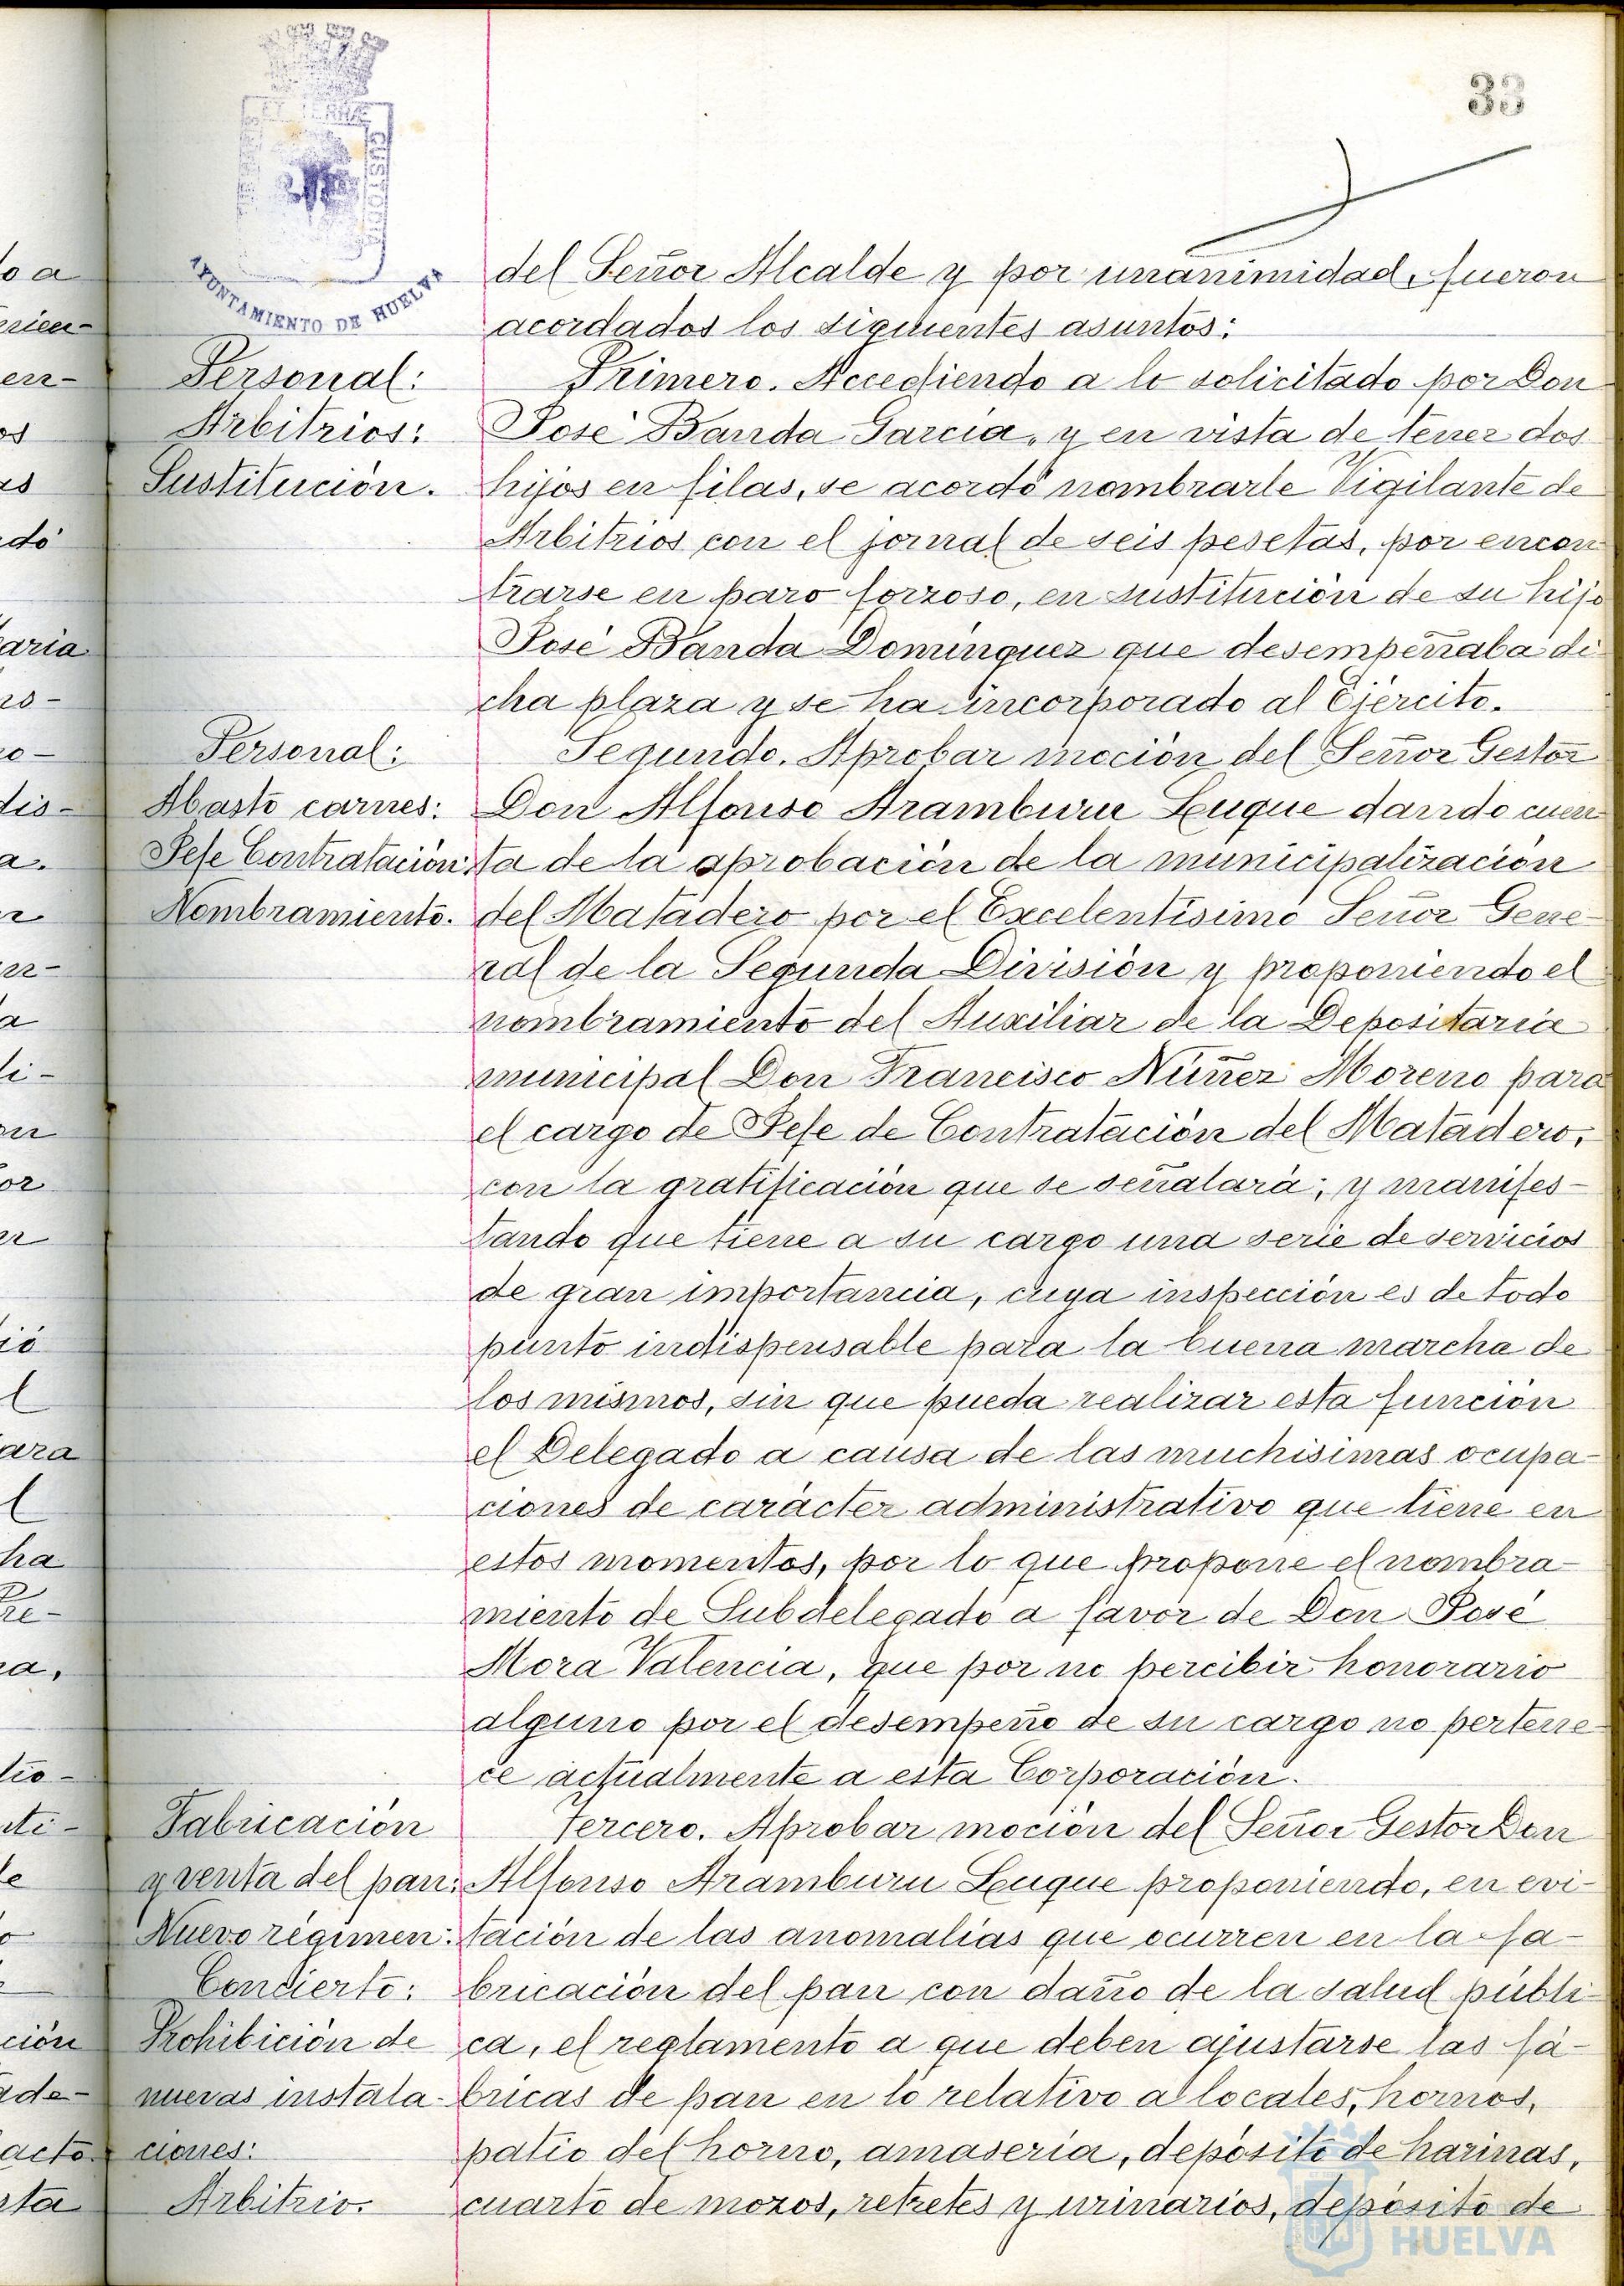 33
AYUNTAMIENTO DE HUELVA
del Señor Alcalde y por unanimidad, fueron
acordados los siguientes asuntos:
Personal:
Arbitrios:
Sustitución.
Primero. Accediendo a lo solicitado por Don
José Banda García, y en vista de tener dos
hijos en filas, se acordó nombrarle Vigilante de
Arbitrios con el jornal de seis pesetas, por encon
trarse en paro forzoso, en sustitución de su hijo
José Banda Domínguez que desempeñaba di
cha plaza y se ha incorporado al Ejército.
Personal:
Abasto carnes:
Jefe Contratación:
Nombramiento.
Segundo. Aprobar moción del Señor Gestor
Don Alfonso Aramburu Luque dando cuen
ta de la aprobación de la municipalización
del Matadero por el Excelentísimo Señor Gene-
ral de la Segunda División y proponiendo el
nombramiento del Auxiliar de la Depositaría
municipal Don Francisco Núñez Moreno para
el cargo de Jefe de Contratación del Matadero,
con la gratificación que se señalará; y manifes-
tando que tiene a su cargo una serie de servicios
de gran importancia, cuya inspección es de todo
punto indispensable para la buena marcha de
los mismos, sin que pueda realizar esta función
el Delegado a causa de las muchísimas ocupa-
ciones de carácter administrativo que tiene en
estos momentos, por lo que propone el nombra-
miento de Subdelegado a favor de Don José
Mora Valencia, que por no percibir honorario
alguno por el desempeño de su cargo no pertene-
ce actualmente a esta Corporación.
Fabricación
y venta del pan:
Nuevo régimen:
Concierto:
Prohibición de
nuevas instala-
ciones:
Arbitrio.
Tercero. Aprobar moción del Señor Gestor Don
Alfonso Aramburu Luque proponiendo, en evi-
tación de las anomalías que ocurren en la fa-
bricación del pan con daño de la salud públi-
ca, el reglamento a que deben ajustarse las fá-
bricas de pan en lo relativo a locales, hornos,
patio del horno, amasería, depósito de harinas,
cuarto de mozos, retretes y urinarios, depósito de
HUELVA